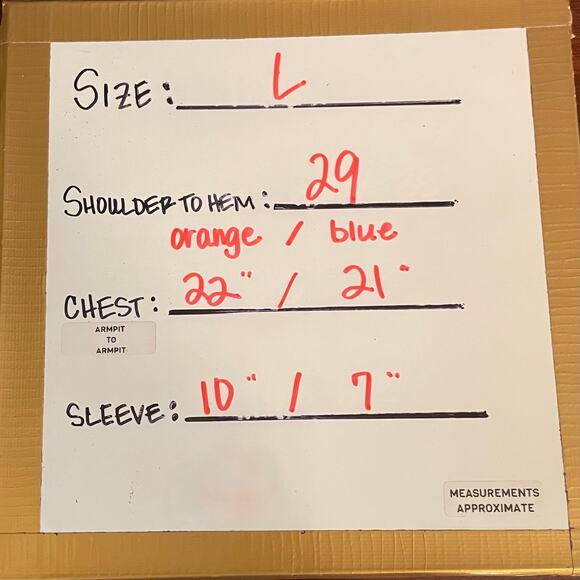 SIZE: L
SHOULDER TO HEM: 29
orange / blue
CHEST: 22" / 21"
ARMPIT
TO
ARMPIT
SLEEVE: 10" / 7"
MEASUREMENTS
APPROXIMATE